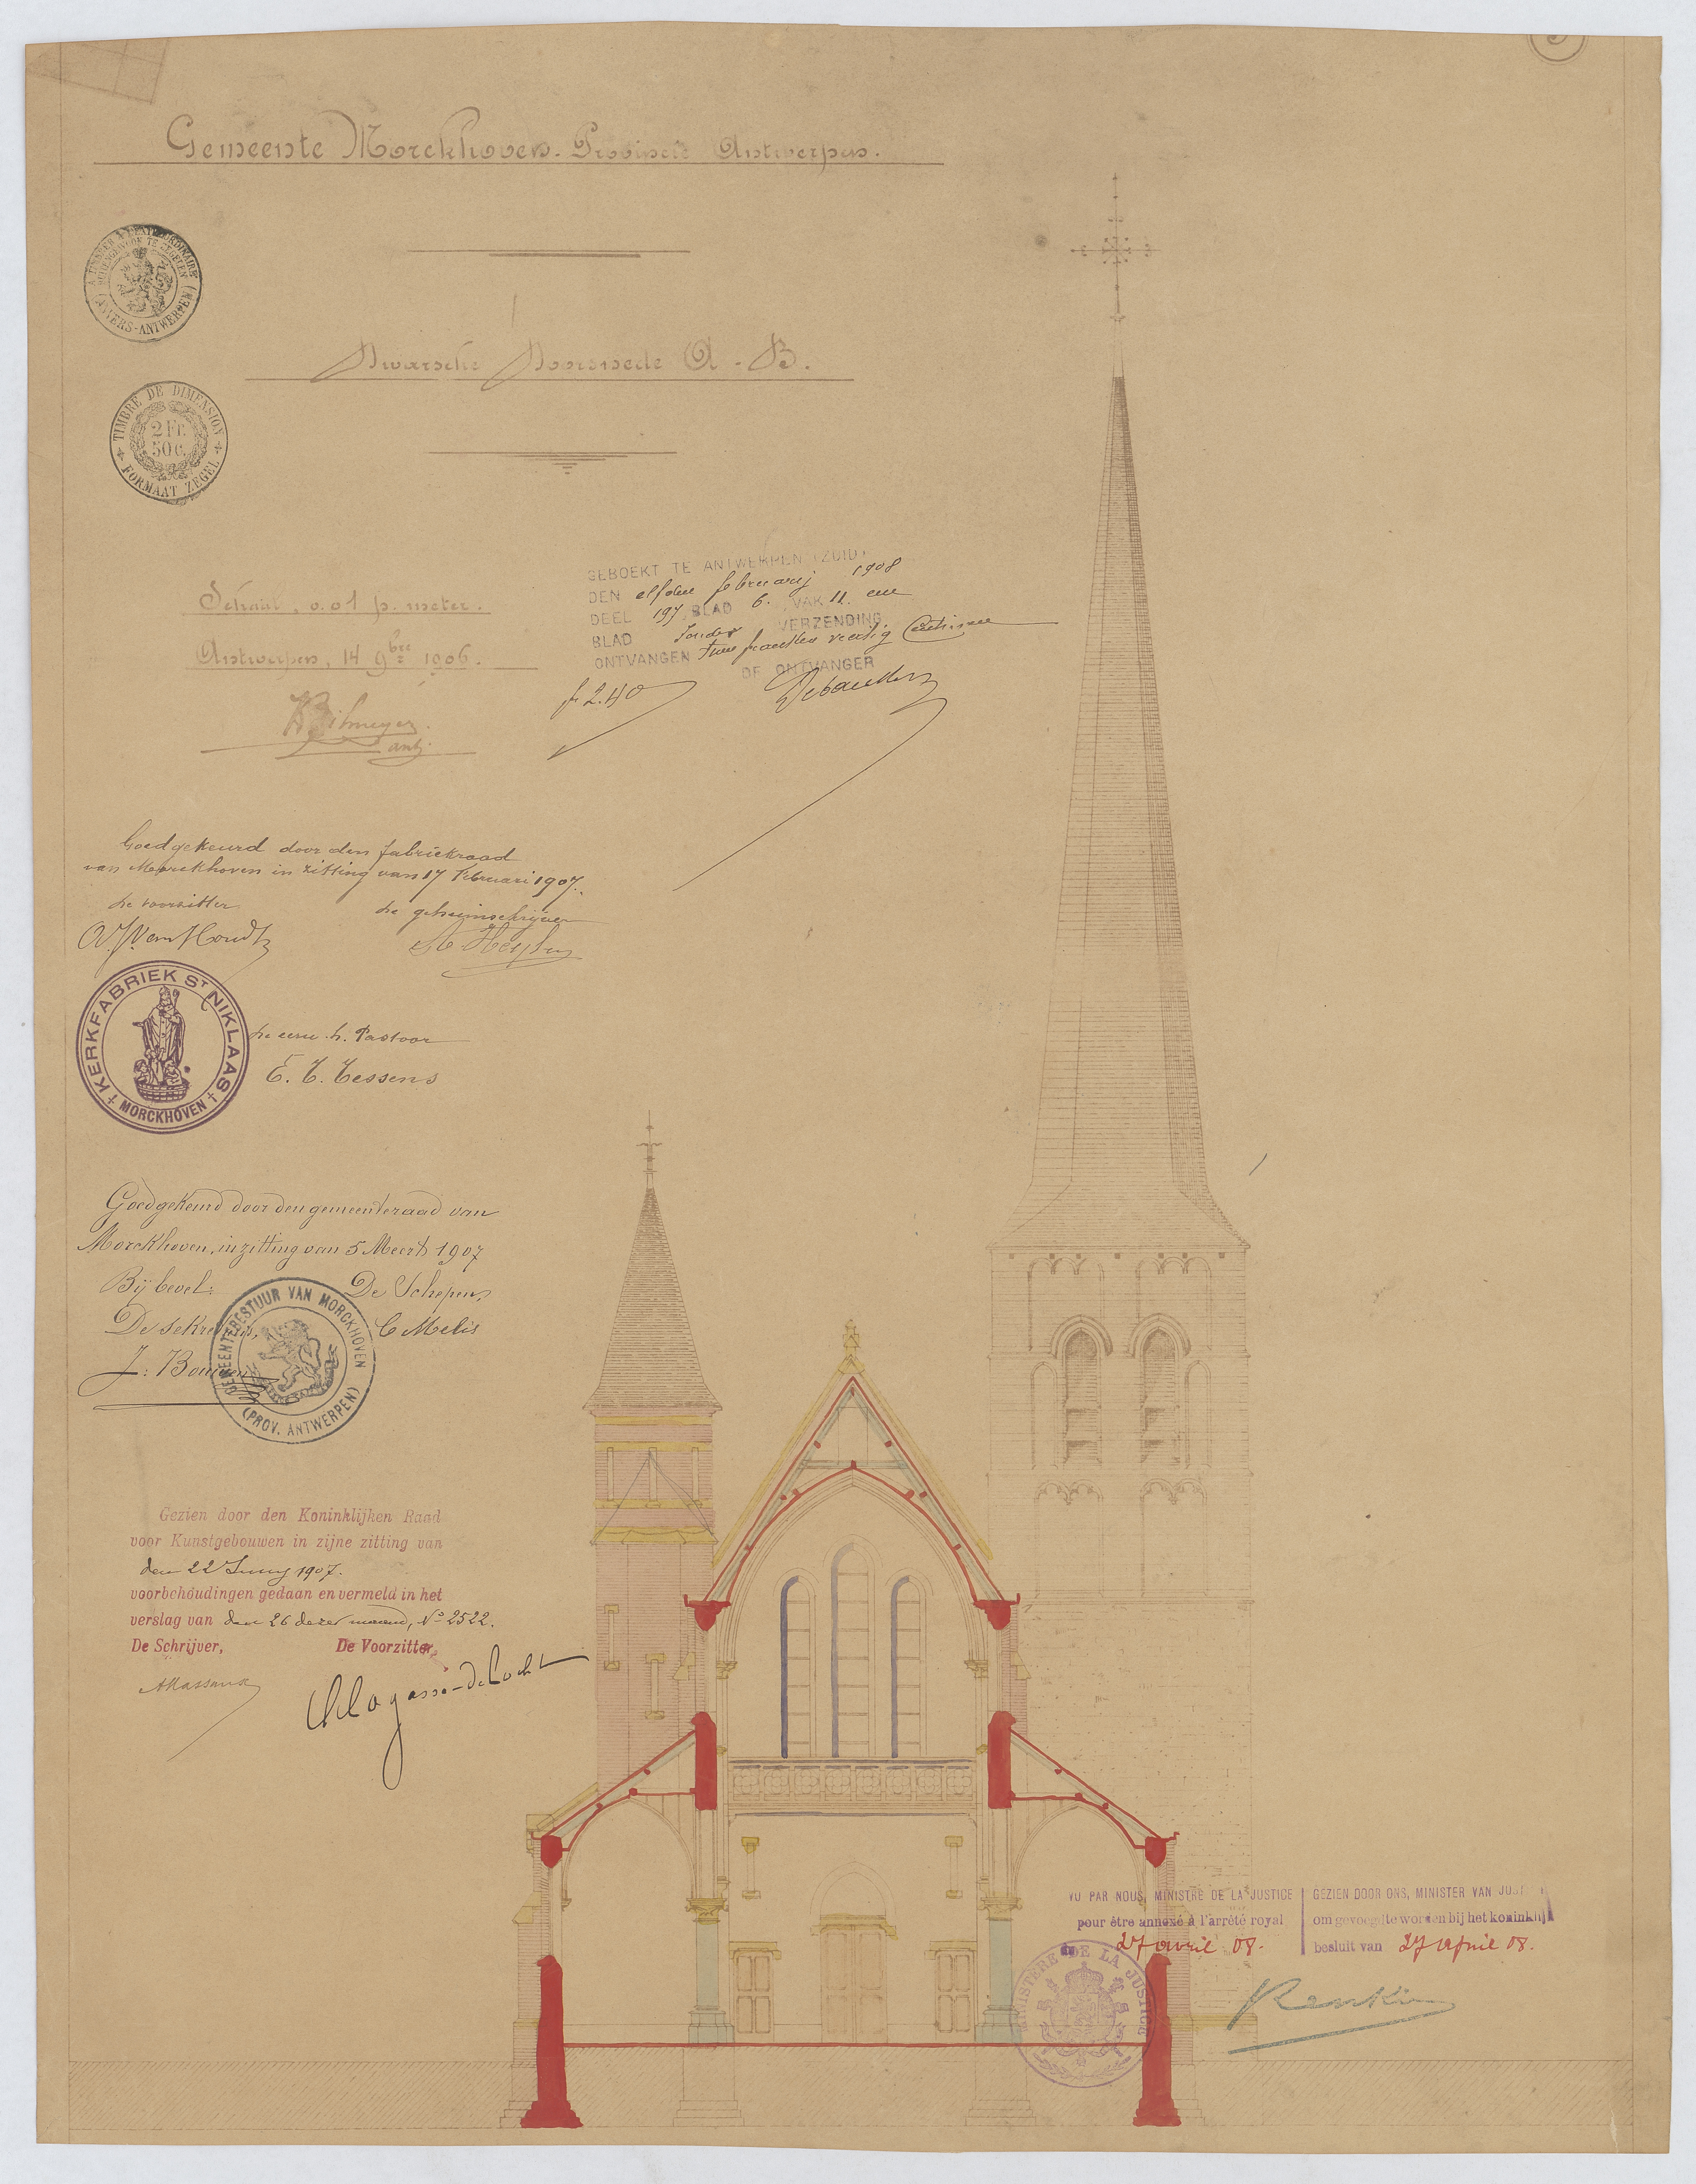 Gemeente Morckhoven. Provincie Antwerpen.
A TIMBRER A L'EXTRAORDINAIRE
BUITENGEWOON TE ZEGELEN
(ANVERS-ANTWERPEN)
Dwarsche Doorsnede A-B.
TIMBRE DE DIMENSION
2 Fr.
50 C.
FORMAAT ZEGEL
Schaal, 0.01 p. meter.
Antwerpen, 14 9bre 1906.
Bilmeyer
GEBOEKT TE ANTWERPEN (ZUID)
DEN elfden februarij 1908
DEEL 197 BLAD 6. VAK 11. een
BLAD zonder VERZENDING
ONTVANGEN twee franken veertig
DE ONTVANGER
fr 2.40
Goedgekeurd door den fabriekraad
van Morckhoven in zitting van 17 Februari 1907.
de voorzitter de geheimschrijver
KERKFABRIEK ST NIKLAAS
MORCKHOVEN
De eerw. h. Pastoor
E. T. Tessens
Goedgekeurd door den gemeenteraad van
Morckhoven, in zitting van 5 Meert 1907
Bij bevel: De Schepen,
De sekretaris, C Melis
GEMEENTEBESTUUR VAN MORCKHOVEN
(PROV. ANTWERPEN)
Gezien door den Koninklijken Raad
voor Kunstgebouwen in zijne zitting van
den 22 Juny 1907.
voorbehoudingen gedaan en vermeld in het
verslag van den 26 dezer maand, No 2522.
De Schrijver, De Voorzitter,
VU PAR NOUS, MINISTRE DE LA JUSTICE
pour être annexé à l'arrêté royal
du 27 avril 08.
GEZIEN DOOR ONS, MINISTER VAN
om gevoegd te worden bij het koninklijk
besluit van 27 April 08.
MINISTERE DE LA JUSTICE
Renkin